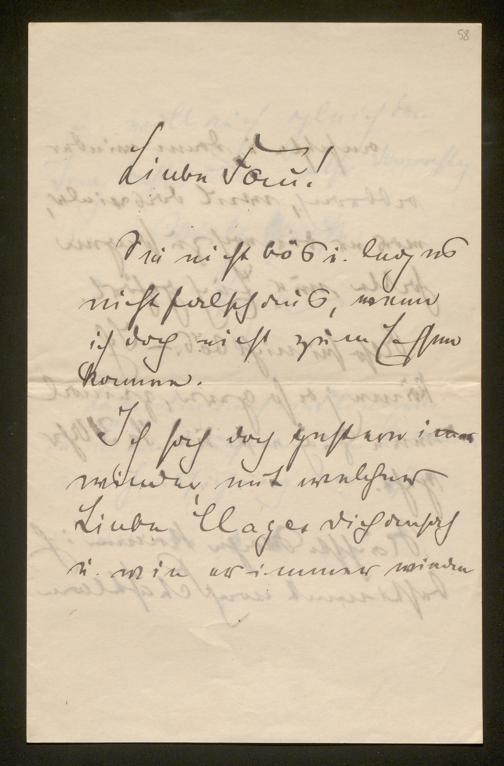 58
Liebe Frau!
Sei nicht bös u. leg es
nicht falsch aus, wenn
ich doch nicht zum Essen
komme.
Ich sah doch gestern immer
wieder mit welcher
Liebe Dich ansah
u. wie er immer wieder